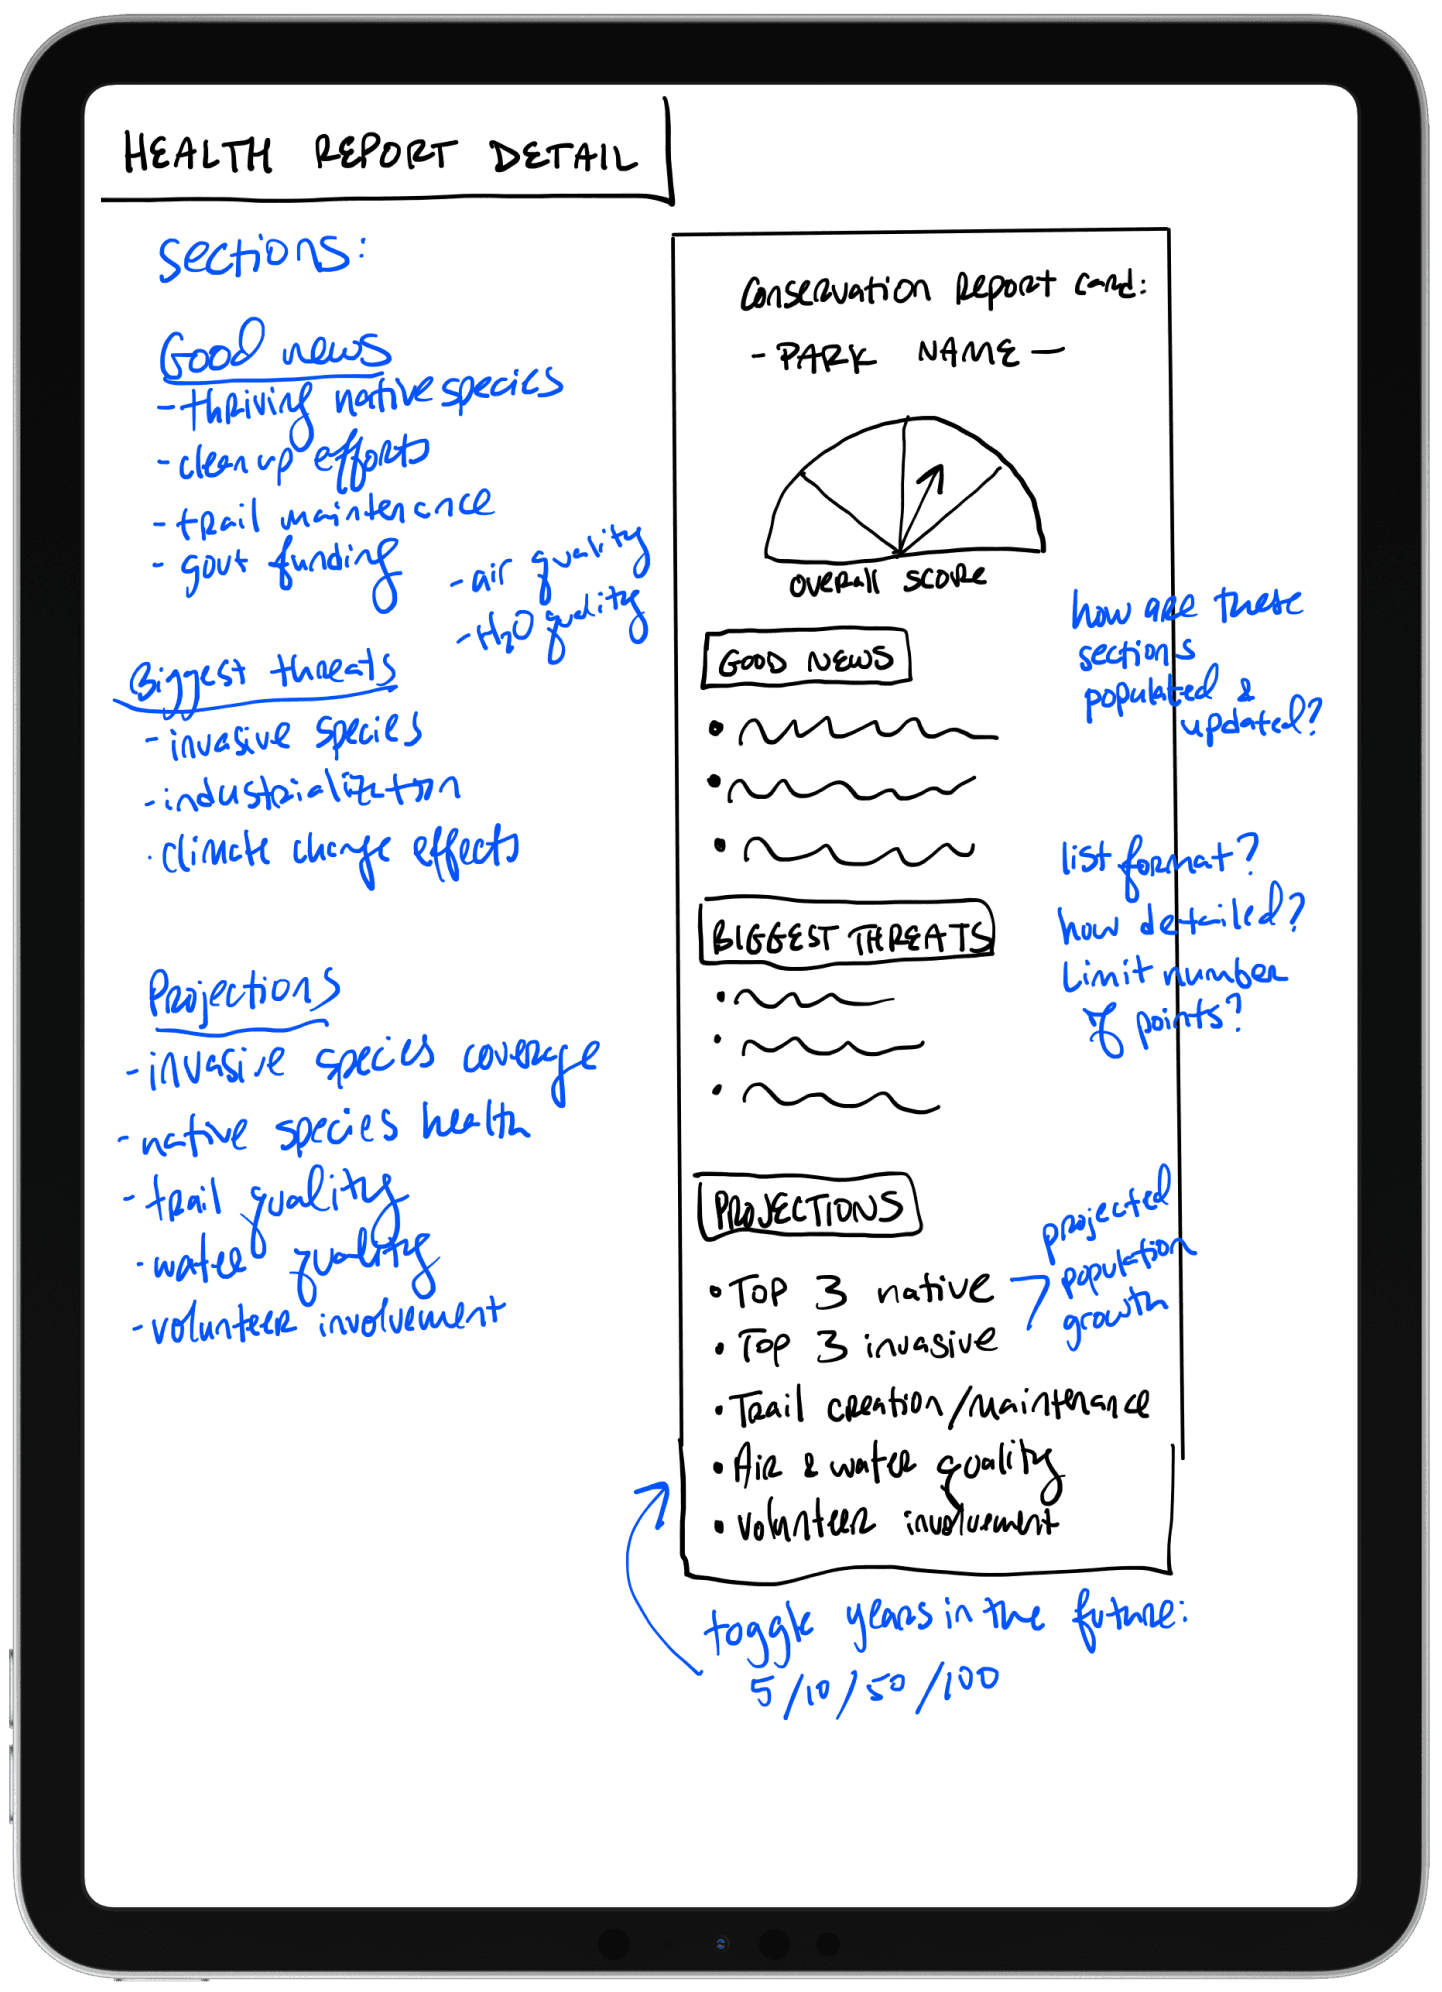 HEALTH REPORT DETAIL
sections:
Good news
- thriving native species
- clean up efforts
- trail maintenance
- govt funding
- air quality
- H₂O quality
Biggest threats
- invasive species
- industrialization
· climate change effects
Projections
- invasive species coverage
- native species health
- trail quality
- water quality
- volunteer involvement
Conservation Report Card:
- PARK NAME -
OVERall SCORE
GOOD NEWS
BIGGEST THREATS
PROJECTIONS
• Top 3 native
• Top 3 invasive
• Trail creation/maintenance
• Air & water quality
• volunteer involvement
how are these
sections
populated &
updated?
list format?
how detailed?
Limit number
of points?
projected
population
growth
toggle years in the future:
5/10/50/100